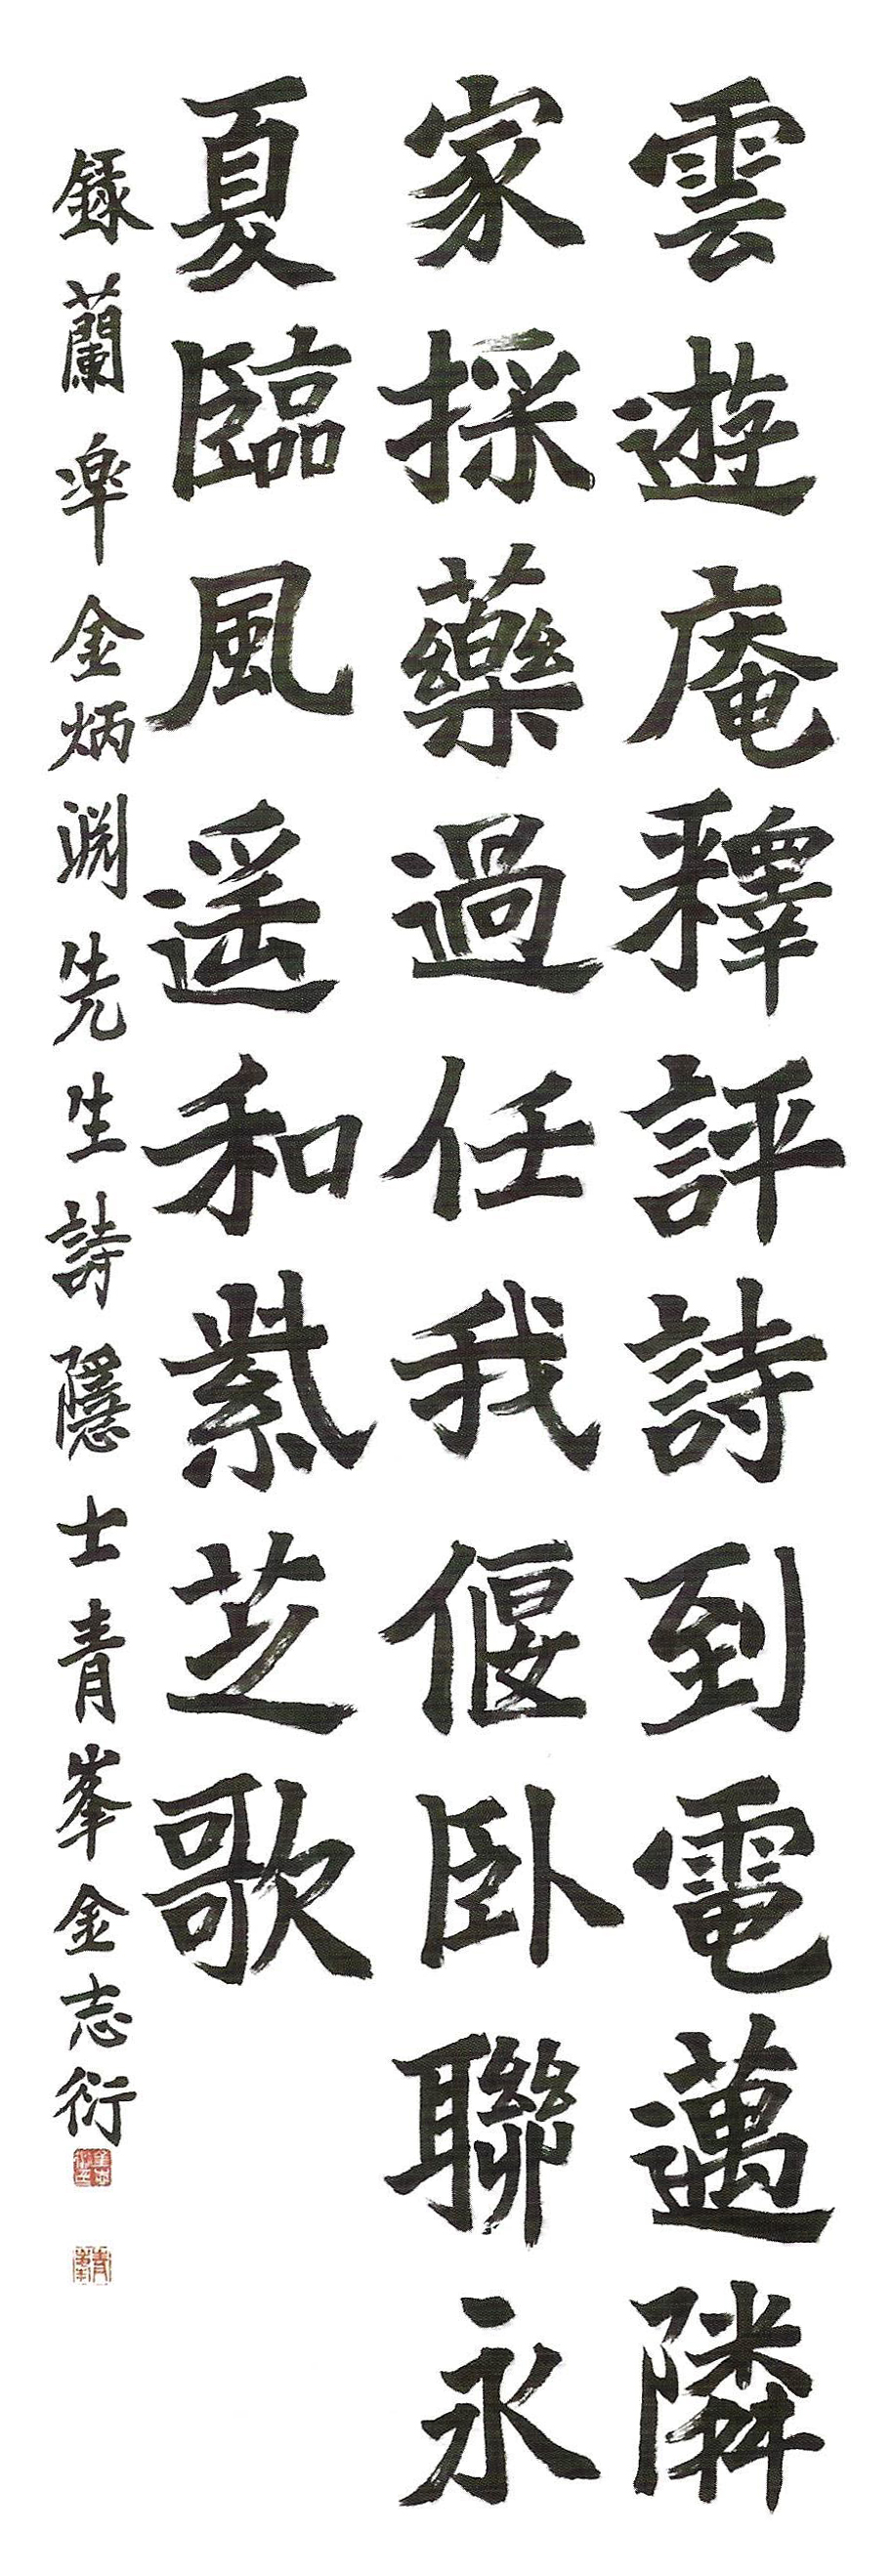 雲遊庵釋評詩到電邁隣
家採藥過任我偃卧聯永
夏臨風遥和紫芝歌
録蘭金炳淵先生詩隱士青峯金志衍